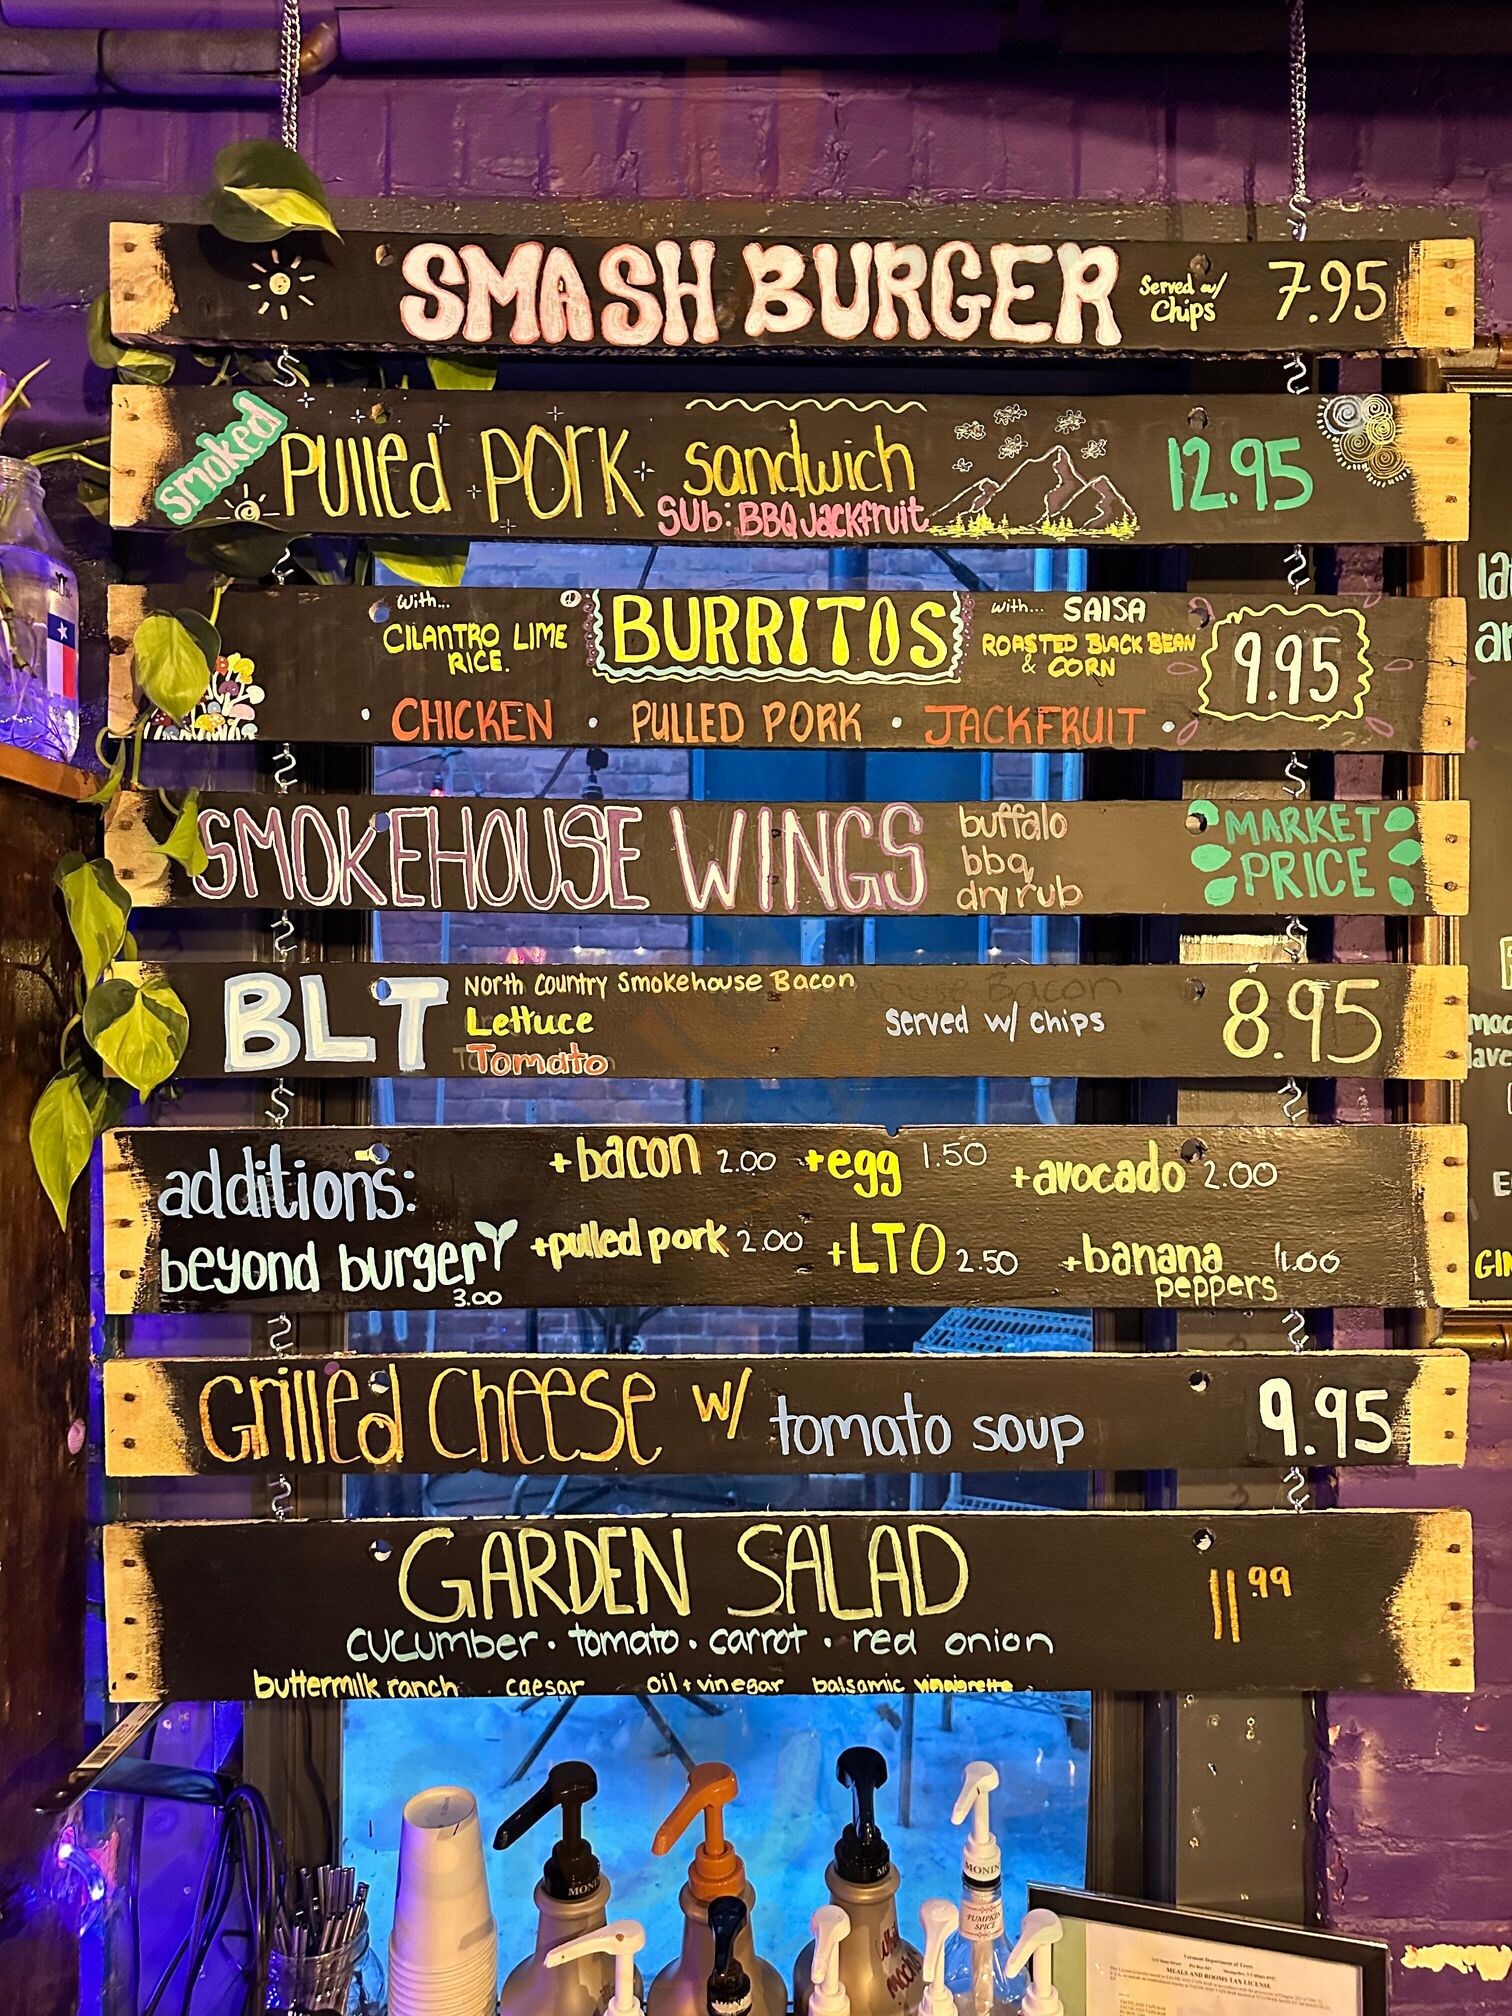 SMASH BURGER Served w/ Chips 7.95
smoked Pulled Pork sandwich 12.95
Sub: BBQ Jackfruit
with... CILANTRO LIME RICE.
BURRITOS
with... SALSA
ROASTED BLACK BEAN & CORN
9.95
• CHICKEN • PULLED PORK • JACKFRUIT •
SMOKEHOUSE WINGS
buffalo
bbq
dry rub
MARKET PRICE
BLT
North Country Smokehouse Bacon
Lettuce
Tomato
served w/ chips
8.95
additions:
+bacon 2.00 +egg 1.50 +avocado 2.00
beyond burger 3.00
+pulled pork 2.00 +LTO 2.50 +banana peppers 1.00
Grilled Cheese w/ tomato soup 9.95
GARDEN SALAD 11.99
cucumber • tomato • carrot • red onion
buttermilk ranch caesar oil + vinegar balsamic vinaigrette
MONIN
MONIN
PUMPKIN SPICE
Vermont Department of Taxes
MEALS AND ROOMS TAX LICENSE